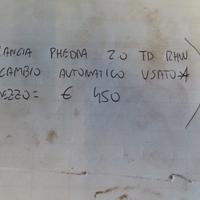 LANCIA PHEDRA 2.0 TD RHW
CAMBIO AUTOMATICO USATO
PREZZO = € 450